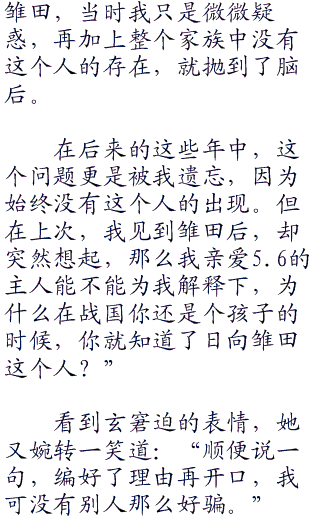 雏田，当时我只是微微疑
惑，再加上整个家族中没有
这个人的存在，就抛到了脑
后。
在后来的这些年中，这
个问题更是被我遗忘，因为
始终没有这个人的出现。但
在上次，我见到雏田后，却
突然想起，那么我亲爱5.6的
主人能不能为我解释下，为
什么在战国你还是个孩子的
时候，你就知道了日向雏田
这个人？”
看到玄窘迫的表情，她
又婉转一笑道：“顺便说一
句，编好了理由再开口，我
可没有别人那么好骗。”